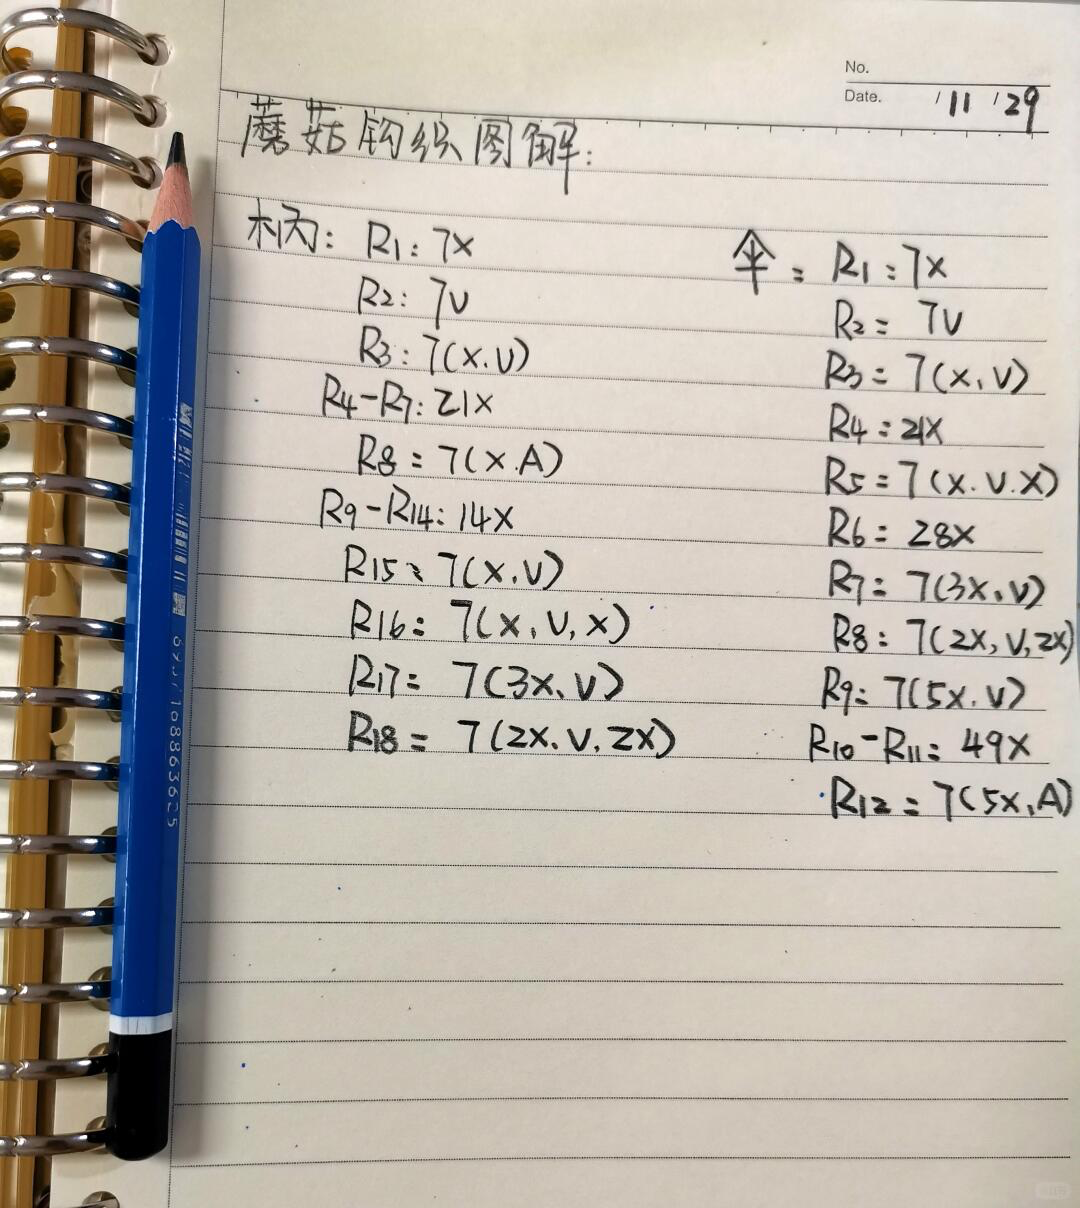 No.
Date. / 11 / 29
蘑菇钩织图解:
柄: R1: 7X
R2: 7V
R3: 7(X.V)
R4-R7: 21X
R8: 7(X.A)
R9-R14: 14X
R15: 7(X,V)
R16: 7(X,V,X)
R17: 7(3X,V)
R18: 7(2X,V,2X)
伞: R1: 7X
R2: 7V
R3: 7(X,V)
R4: 21X
R5: 7(X.V.X)
R6: 28X
R7: 7(3X,V)
R8: 7(2X,V,2X)
R9: 7(5X.V)
R10-R11: 49X
R12: 7(5X,A)